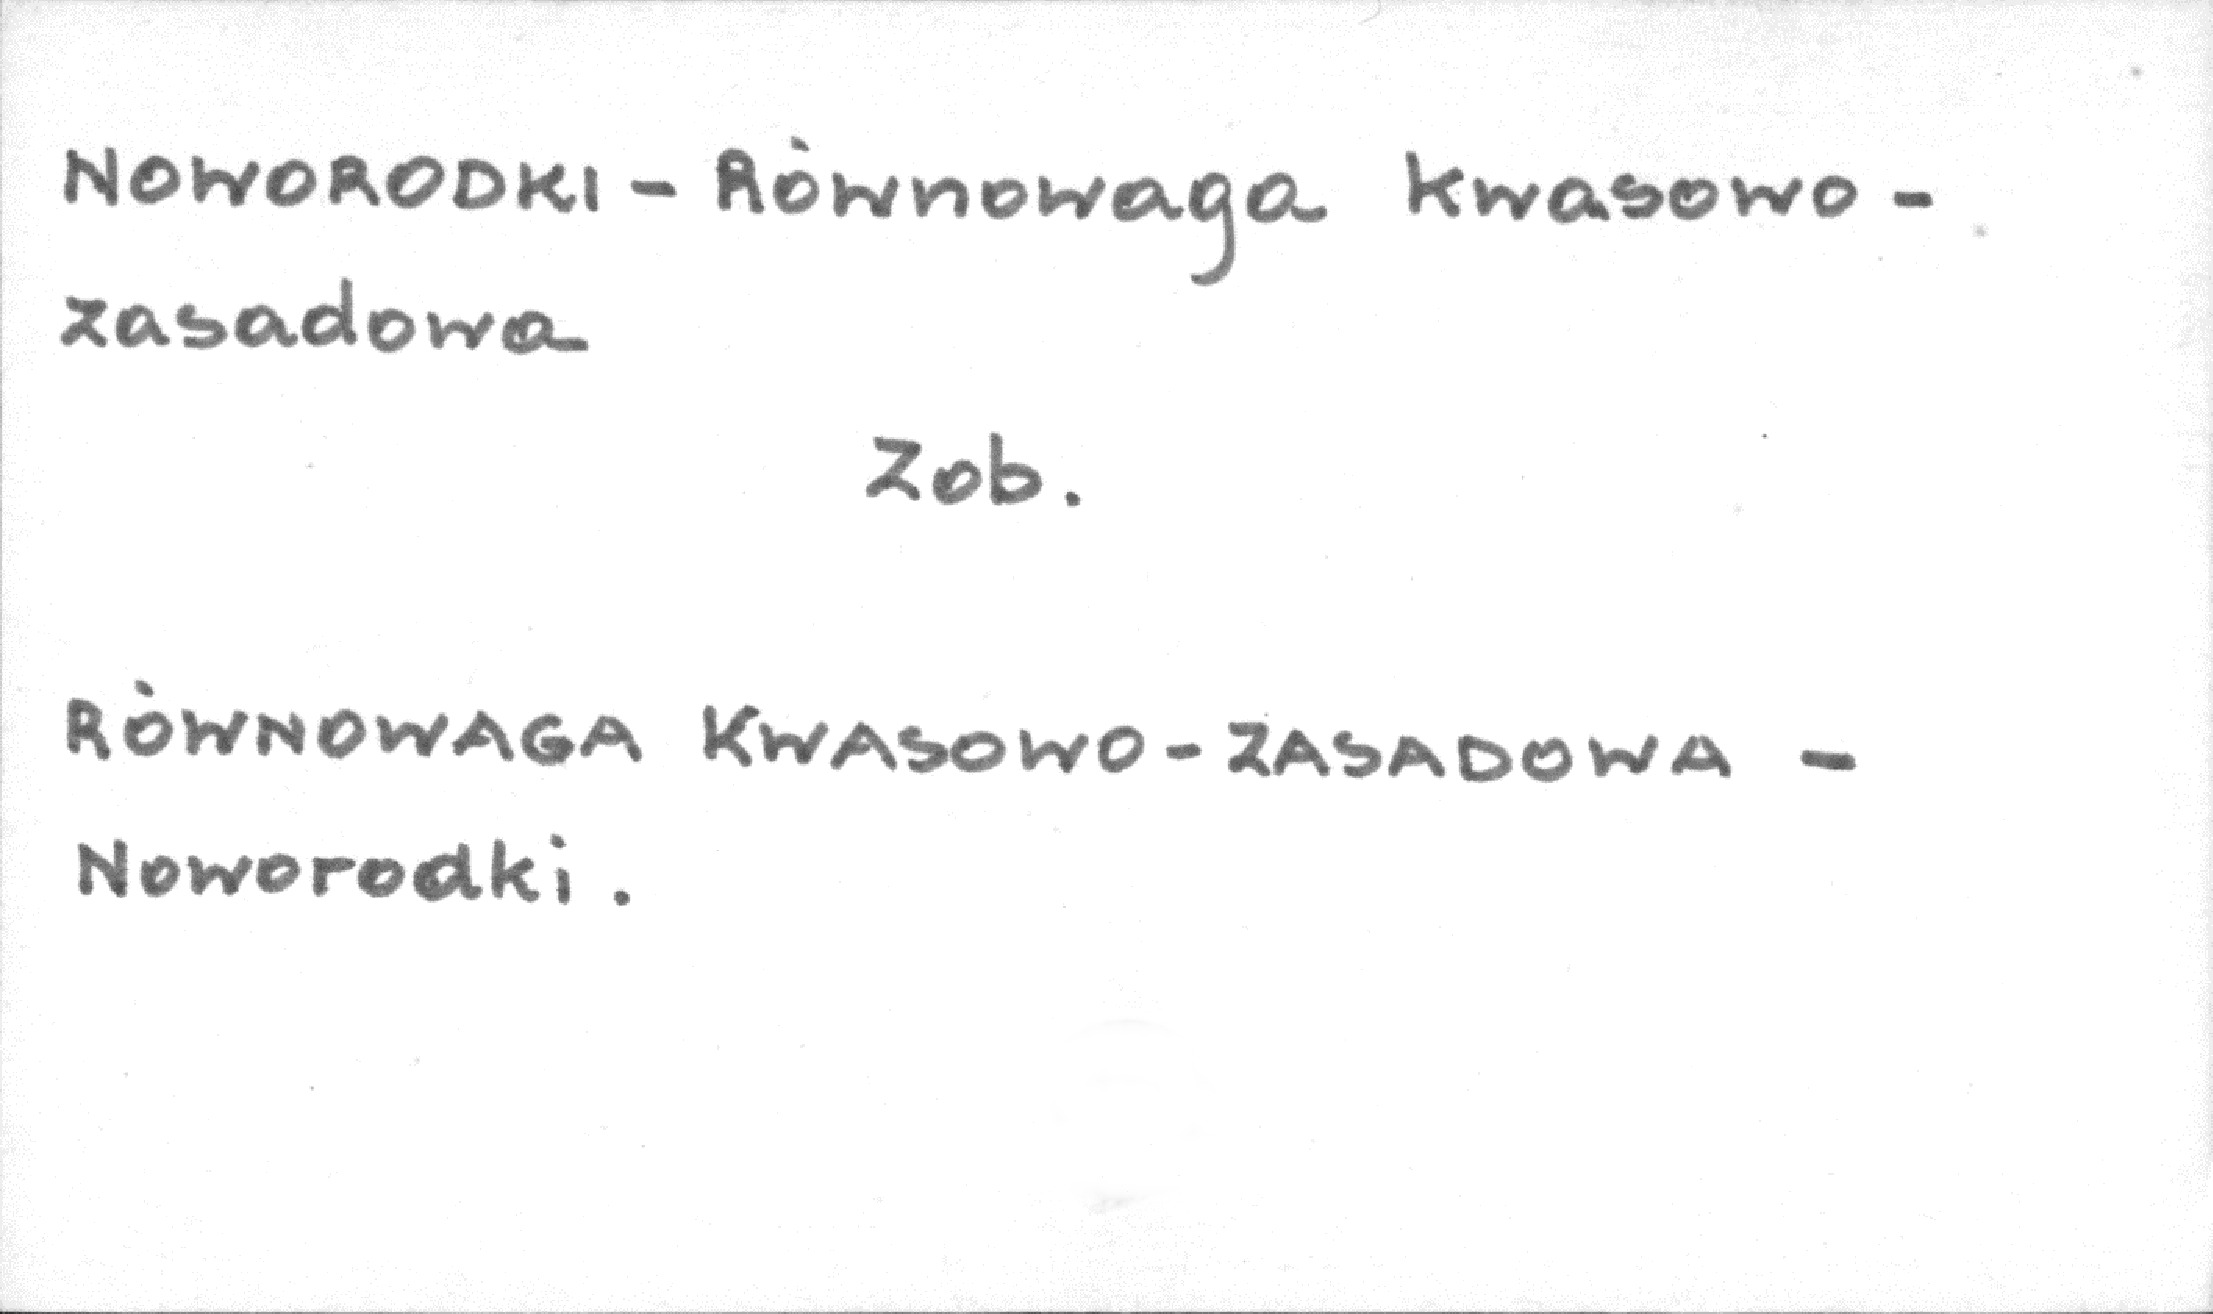 NOWORODKI - Równowaga kwasowo -
zasadowa
Zob.
RÓWNOWAGA KWASOWO - ZASADOWA -
Noworodki.